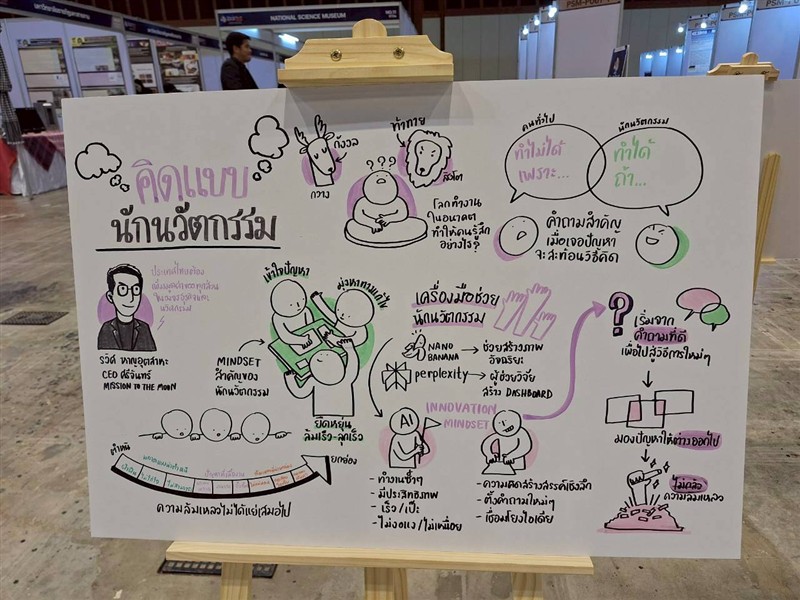 NATIONAL SCIENCE MUSEUM
คิดแบบ
นักนวัตกรรม
กังวล
กวาง
ท้าทาย
สิงโต
???
โลกทำงาน
ในอนาคต
ทำให้คนรู้สึก
อย่างไร?
คนทั่วไป
ทำไม่ได้
เพราะ...
นักนวัตกรรม
ทำได้
ถ้า...
คำถามสำคัญ
เมื่อเจอปัญหา
จะสะท้อนวิธีคิด
ประเทศไทยต้อง
นวัตกรรม
รวิศ หาญอุตสาหะ
CEO ศรีจันทร์
MISSION TO THE MOON
เข้าใจปัญหา
มุ่งหาทางแก้ไข
MINDSET
สำคัญของ
นักนวัตกรรม
ยืดหยุ่น
ล้มเร็ว-ลุกเร็ว
เครื่องมือช่วย
นักนวัตกรรม
NANO
BANANA
ช่วยสร้างภาพ
อัจฉริยะ
perplexity
ผู้ช่วยวิจัย
สร้าง DASHBOARD
INNOVATION
MINDSET
AI
- ทำงานซ้ำๆ
- มีประสิทธิภาพ
- เร็ว/เป๊ะ
- ไม่งอแง/ไม่เหนื่อย
- ความคิดสร้างสรรค์เชิงลึก
- ตั้งคำถามใหม่ๆ
- เชื่อมโยงไอเดีย
?
เริ่มจาก
คำถามที่ดี
เพื่อไปสู่วิธีการใหม่ๆ
มองปัญหาให้ต่างออกไป
ไม่กลัว
ความล้มเหลว
ตำหนิ
ยกย่อง
ความล้มเหลวไม่ได้แย่เสมอไป